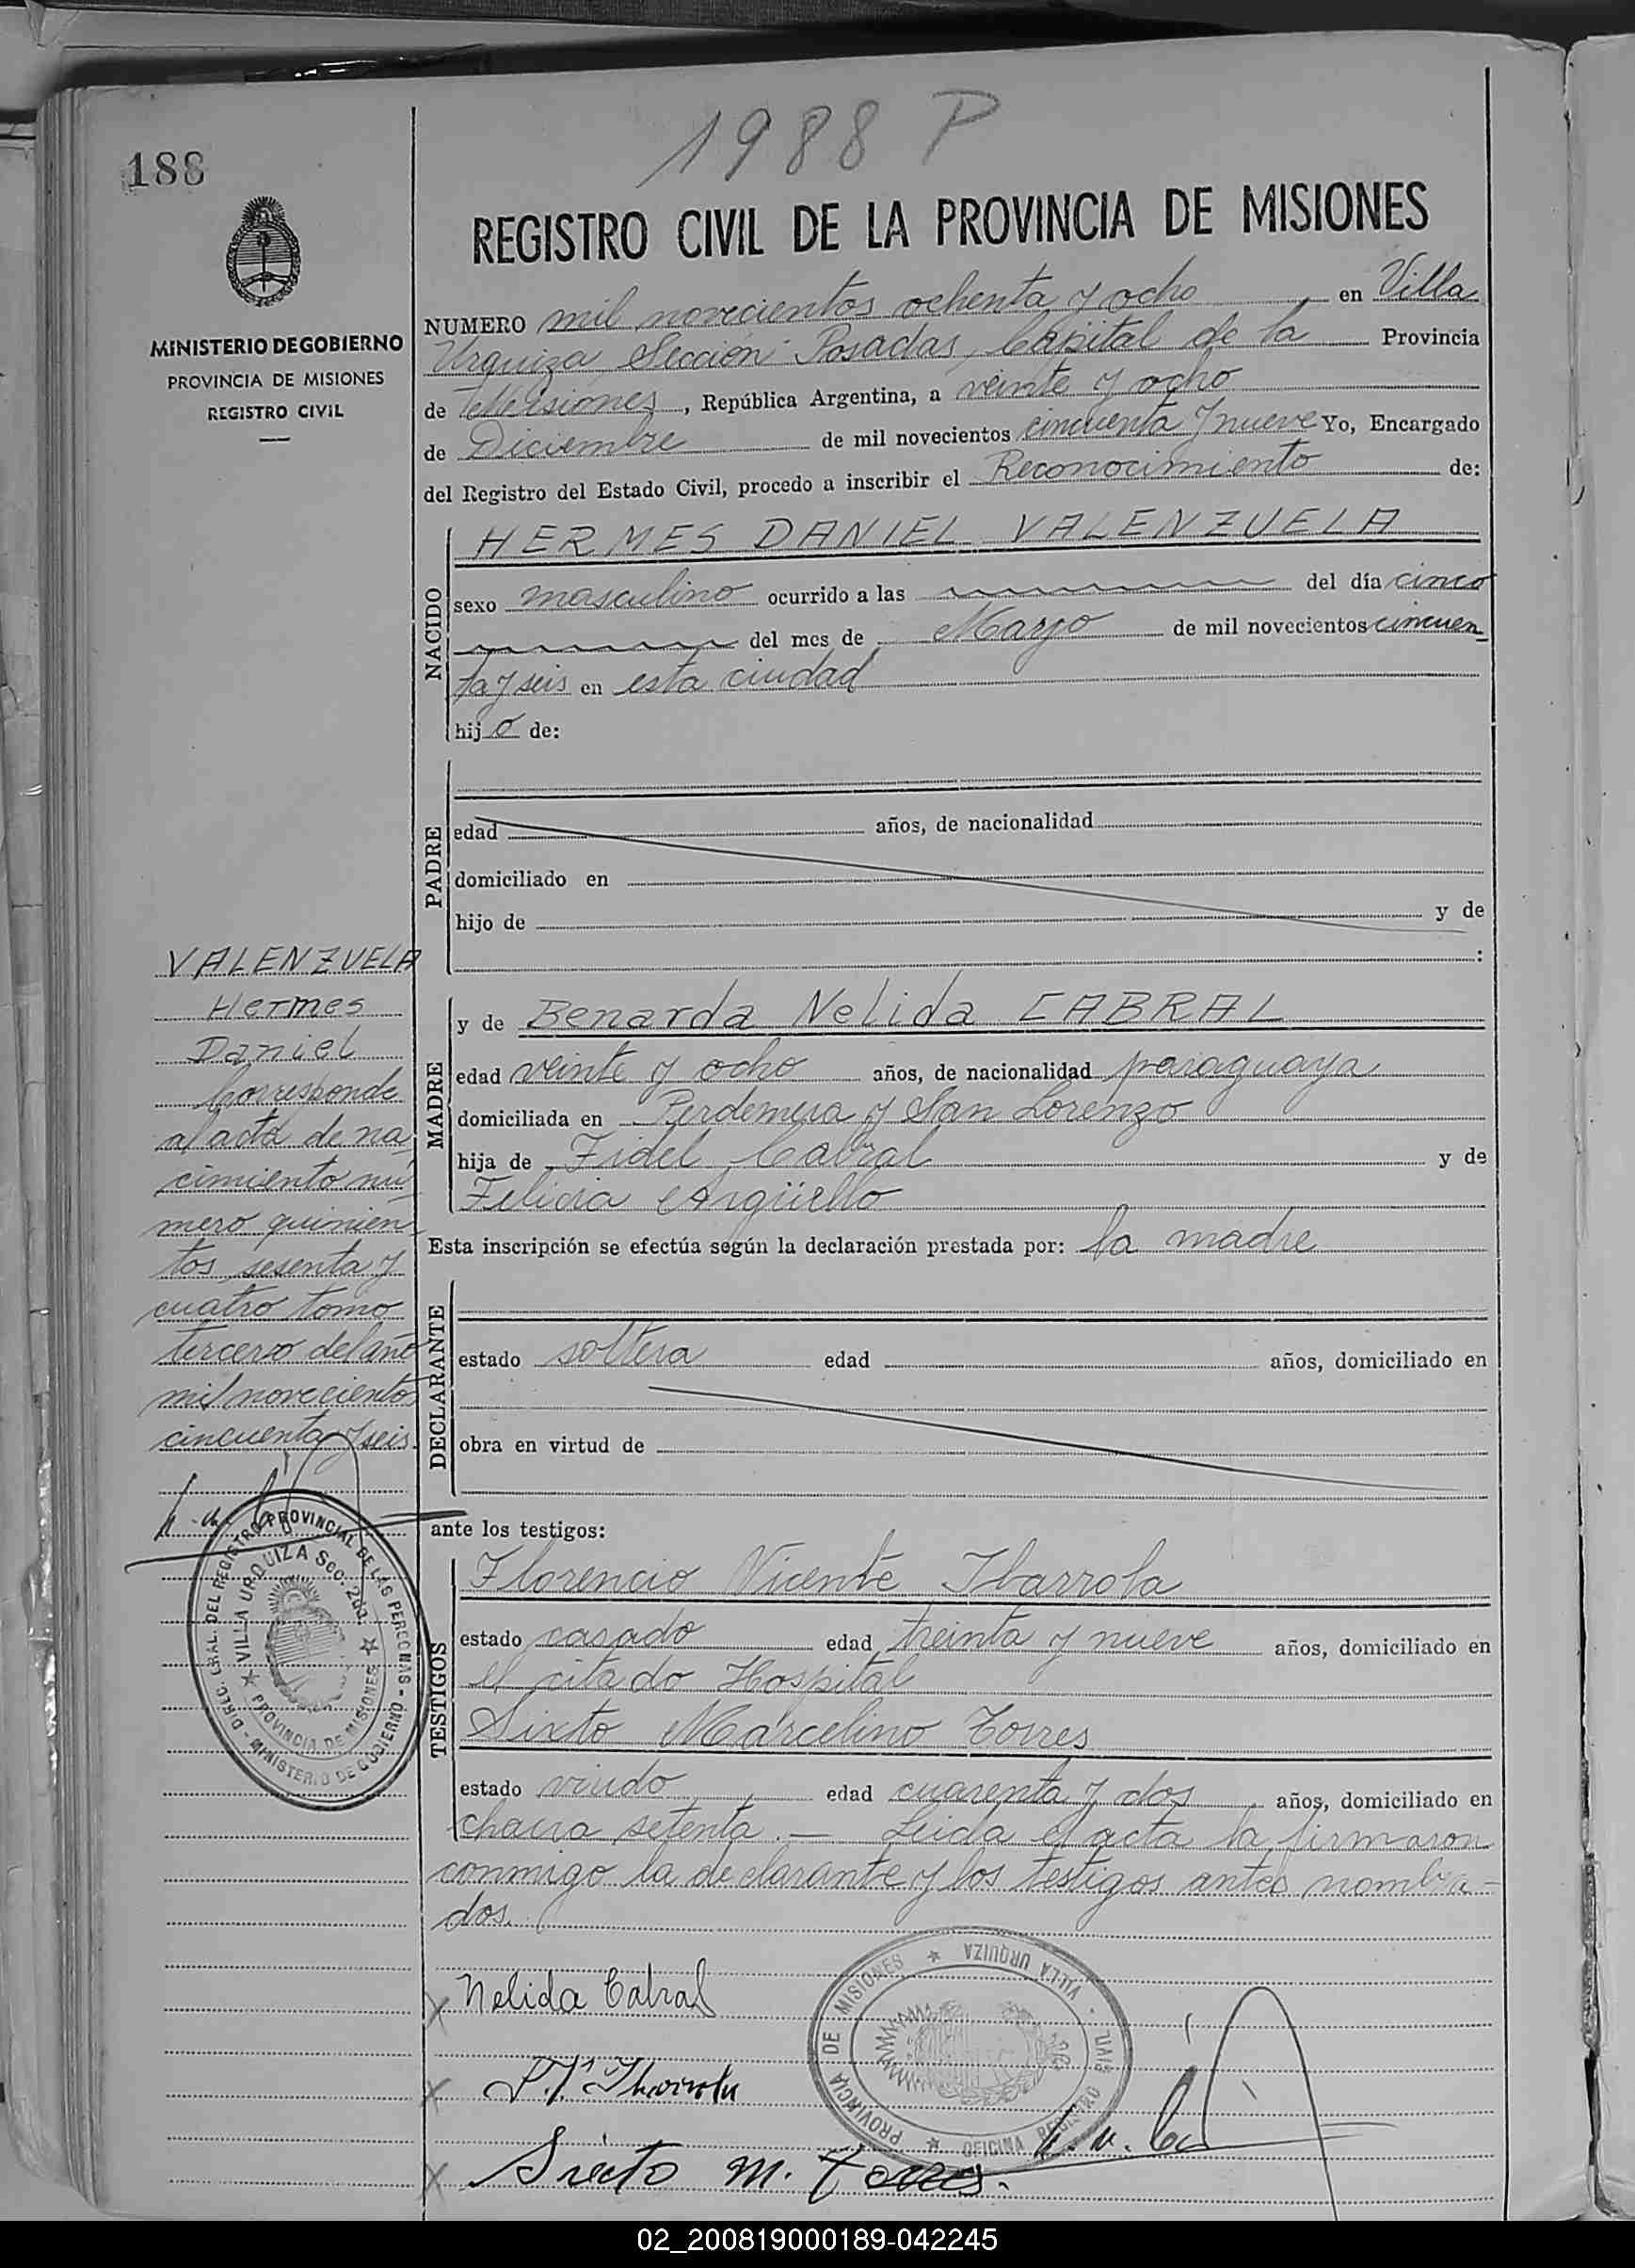 1988 P
188
REGISTRO CIVIL DE LA PROVINCIA DE MISIONES
MINISTERIO DE GOBIERNO
PROVINCIA DE MISIONES
REGISTRO CIVIL
NUMERO mil novecientos ochenta y ocho, en Villa
Urquiza Sección Posadas, Capital de la Provincia
de Misiones, República Argentina, a veinte y ocho
de Diciembre de mil novecientos cincuenta y nueve Yo, Encargado
del Registro del Estado Civil, procedo a inscribir el Reconocimiento de:
NACIDO
HERMES DANIEL VALENZUELA
sexo masculino ocurrido a las del día cinco
del mes de Marzo de mil novecientos cincuen
ta y seis en esta ciudad
hijo de:
PADRE
edad años, de nacionalidad
domiciliado en
hijo de y de
:
VALENZUELA
Hermes
Daniel
Corresponde
al acta de na
cimiento nú
mero quinien
tos sesenta y
cuatro tomo
tercero del año
mil novecientos
cincuenta y seis.
MADRE
y de Benarda Nelida CABRAL
edad veinte y ocho años, de nacionalidad paraguaya
domiciliada en y San Lorenzo
hija de Fidel Cabral y de
Felicia Argüello
Esta inscripción se efectúa según la declaración prestada por: la madre
DECLARANTE
estado soltera edad años, domiciliado en
obra en virtud de
ante los testigos:
TESTIGOS
Florencio Vicente Ibarrola
estado casado edad treinta y nueve años, domiciliado en
el citado Hospital
Sixto Marcelino Torres
estado viudo edad cuarenta y dos años, domiciliado en
chacra setenta.— Leida el acta la firmaron
conmigo la declarante y los testigos antes nombra-
dos.
DIREC. GRAL. DEL REGISTRO PROVINCIAL DE LAS PERSONAS - MINISTERIO DE GOBIERNO
VILLA URQUIZA Sec. PROVINCIA DE MISIONES
x Nelida Cabral
x Ibarrola
x Sixto M. Torres.
PROVINCIA DE MISIONES VILLA URQUIZA - OFICINA REGISTRO CIVIL
02_200819000189-042245